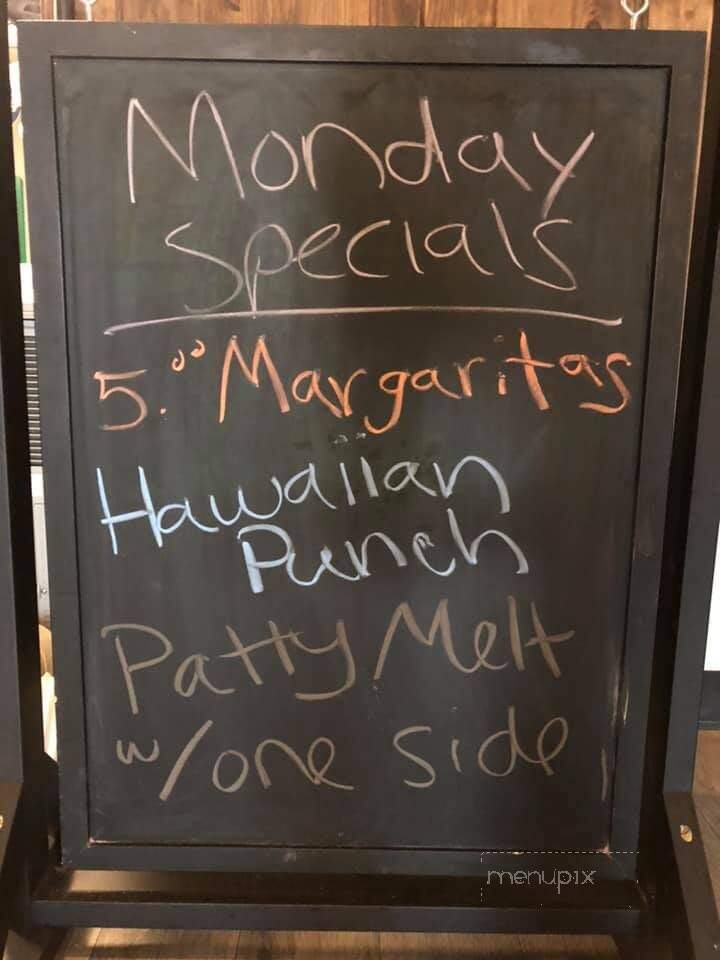 Monday
Specials
5.00 Margaritas
Hawaiian
Punch
Patty Melt
w/one side
menupix